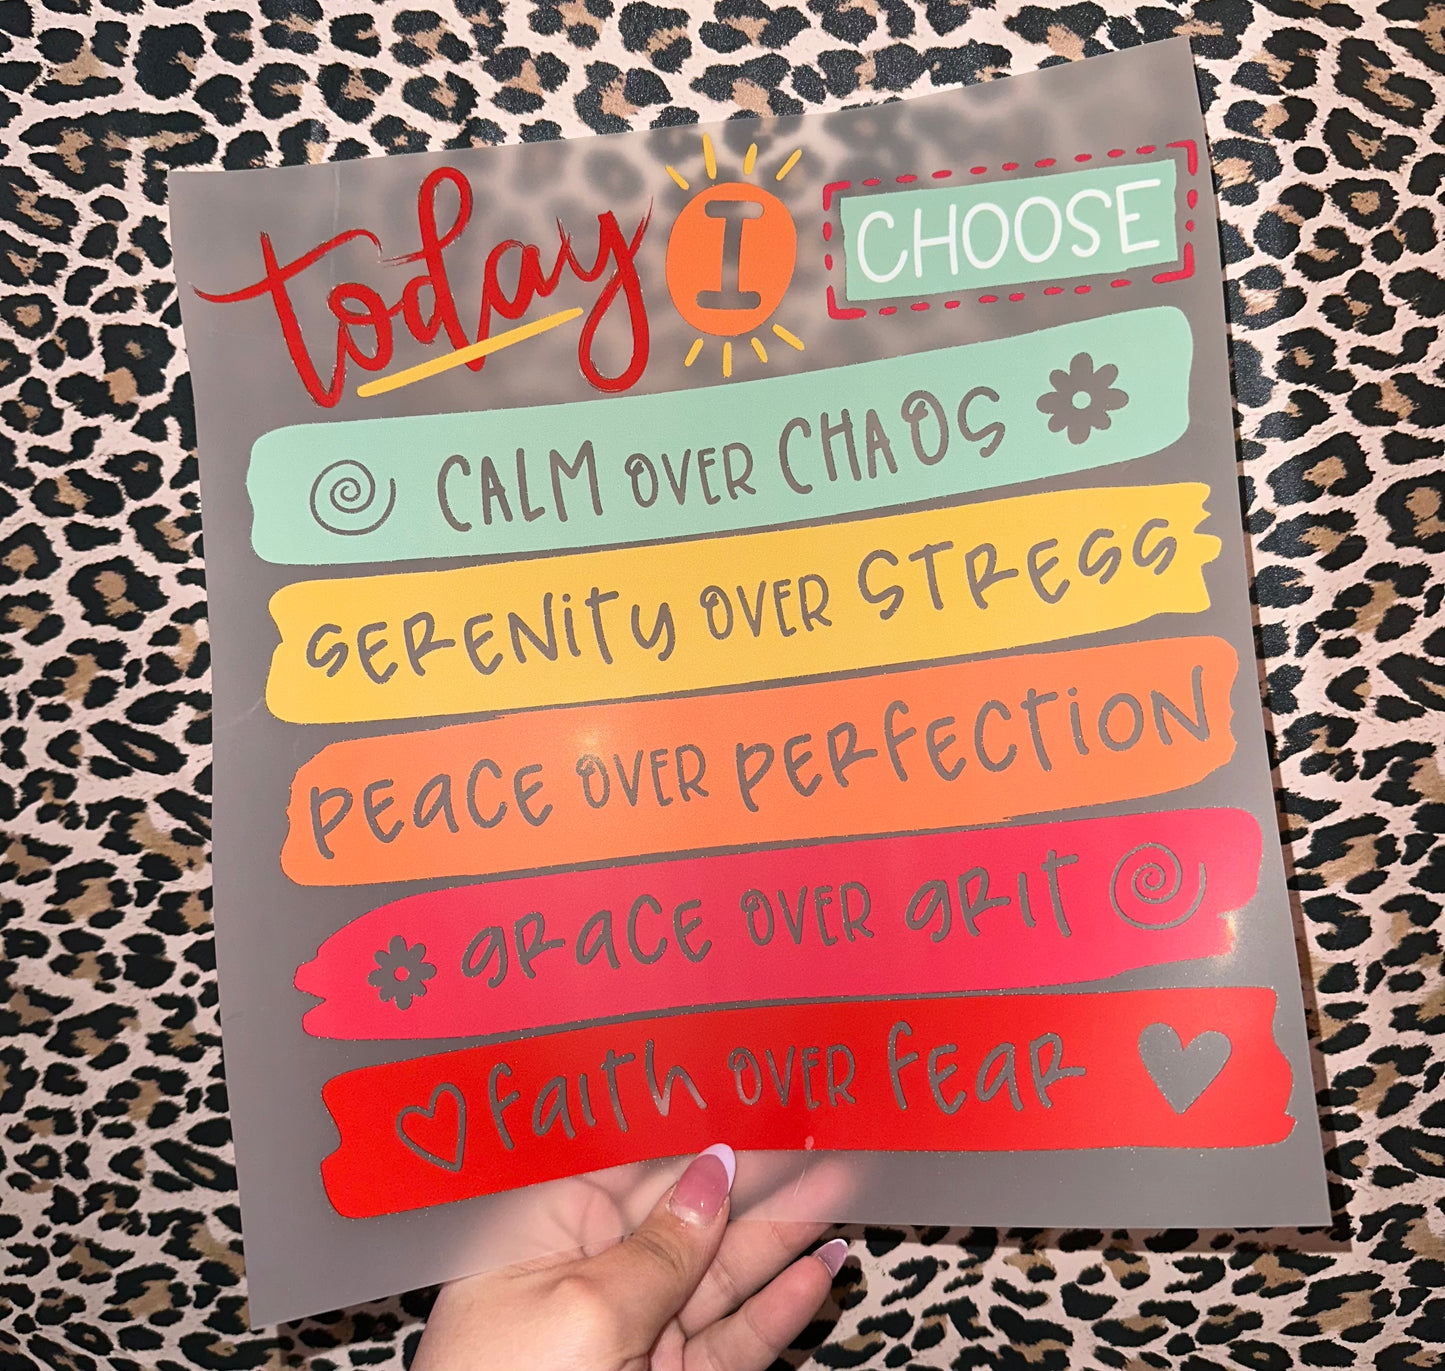 today I CHOOSE
CALM OVER CHAOS
SERENITY OVER STRESS
PEACE OVER PERFECTION
GRACE OVER GRIT
faith OVER fear